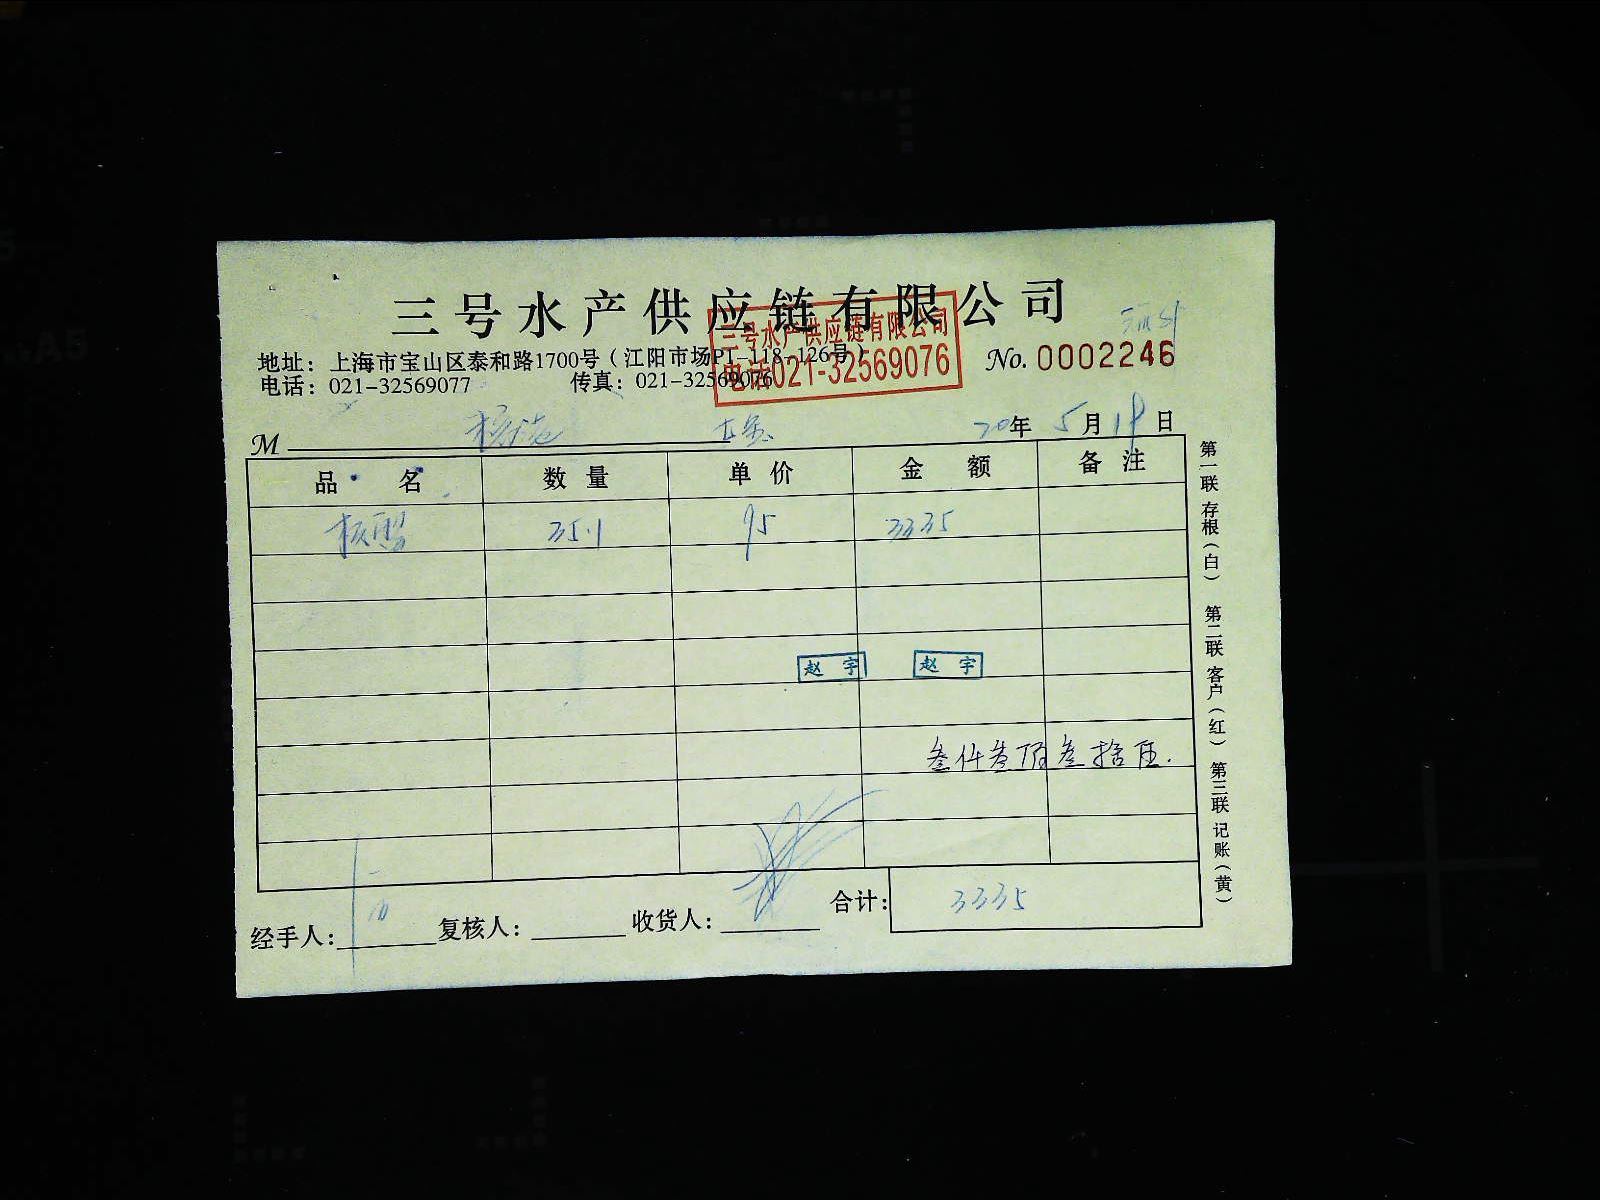 三号水产供应链有限公司
三号水产供应链有限公司
电话021-32569076
地址：上海市宝山区泰和路1700号（江阳市场P1-118-126号）
No. 0002246
电话：021-32569077 传真：021-32569076
M
20年 5月19日
品名 数量 单价 金额 备注
35.1 95 3335
赵宇 赵宇
叁仟叁佰叁拾伍.
经手人： 复核人： 收货人： 合计： 3335
第一联 存根（白） 第二联 客户（红） 第三联 记账（黄）